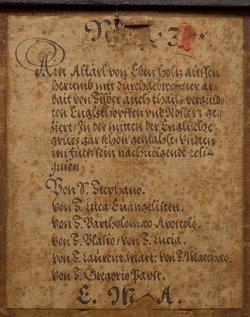 Ain Altärl von Eben holz aussen
herumb mit durchgebrochner ar-
bait von Silber auch thails vergulden
Englskhöpffen und Roslen ge-
ziert, In der mitten der Englische
grues gar schön gemahlt, unden
mit diesen nachvolgende reli-
quien,
Von S. Stephano.
von S. Luca Evangelisten.
von S. Bartholomæo Apostolo.
von S. Blasio, von S. Lucia.
von S. Laurent: Mart: von S. Matthæo
von S. Gregorio Papst.
E. M. A.